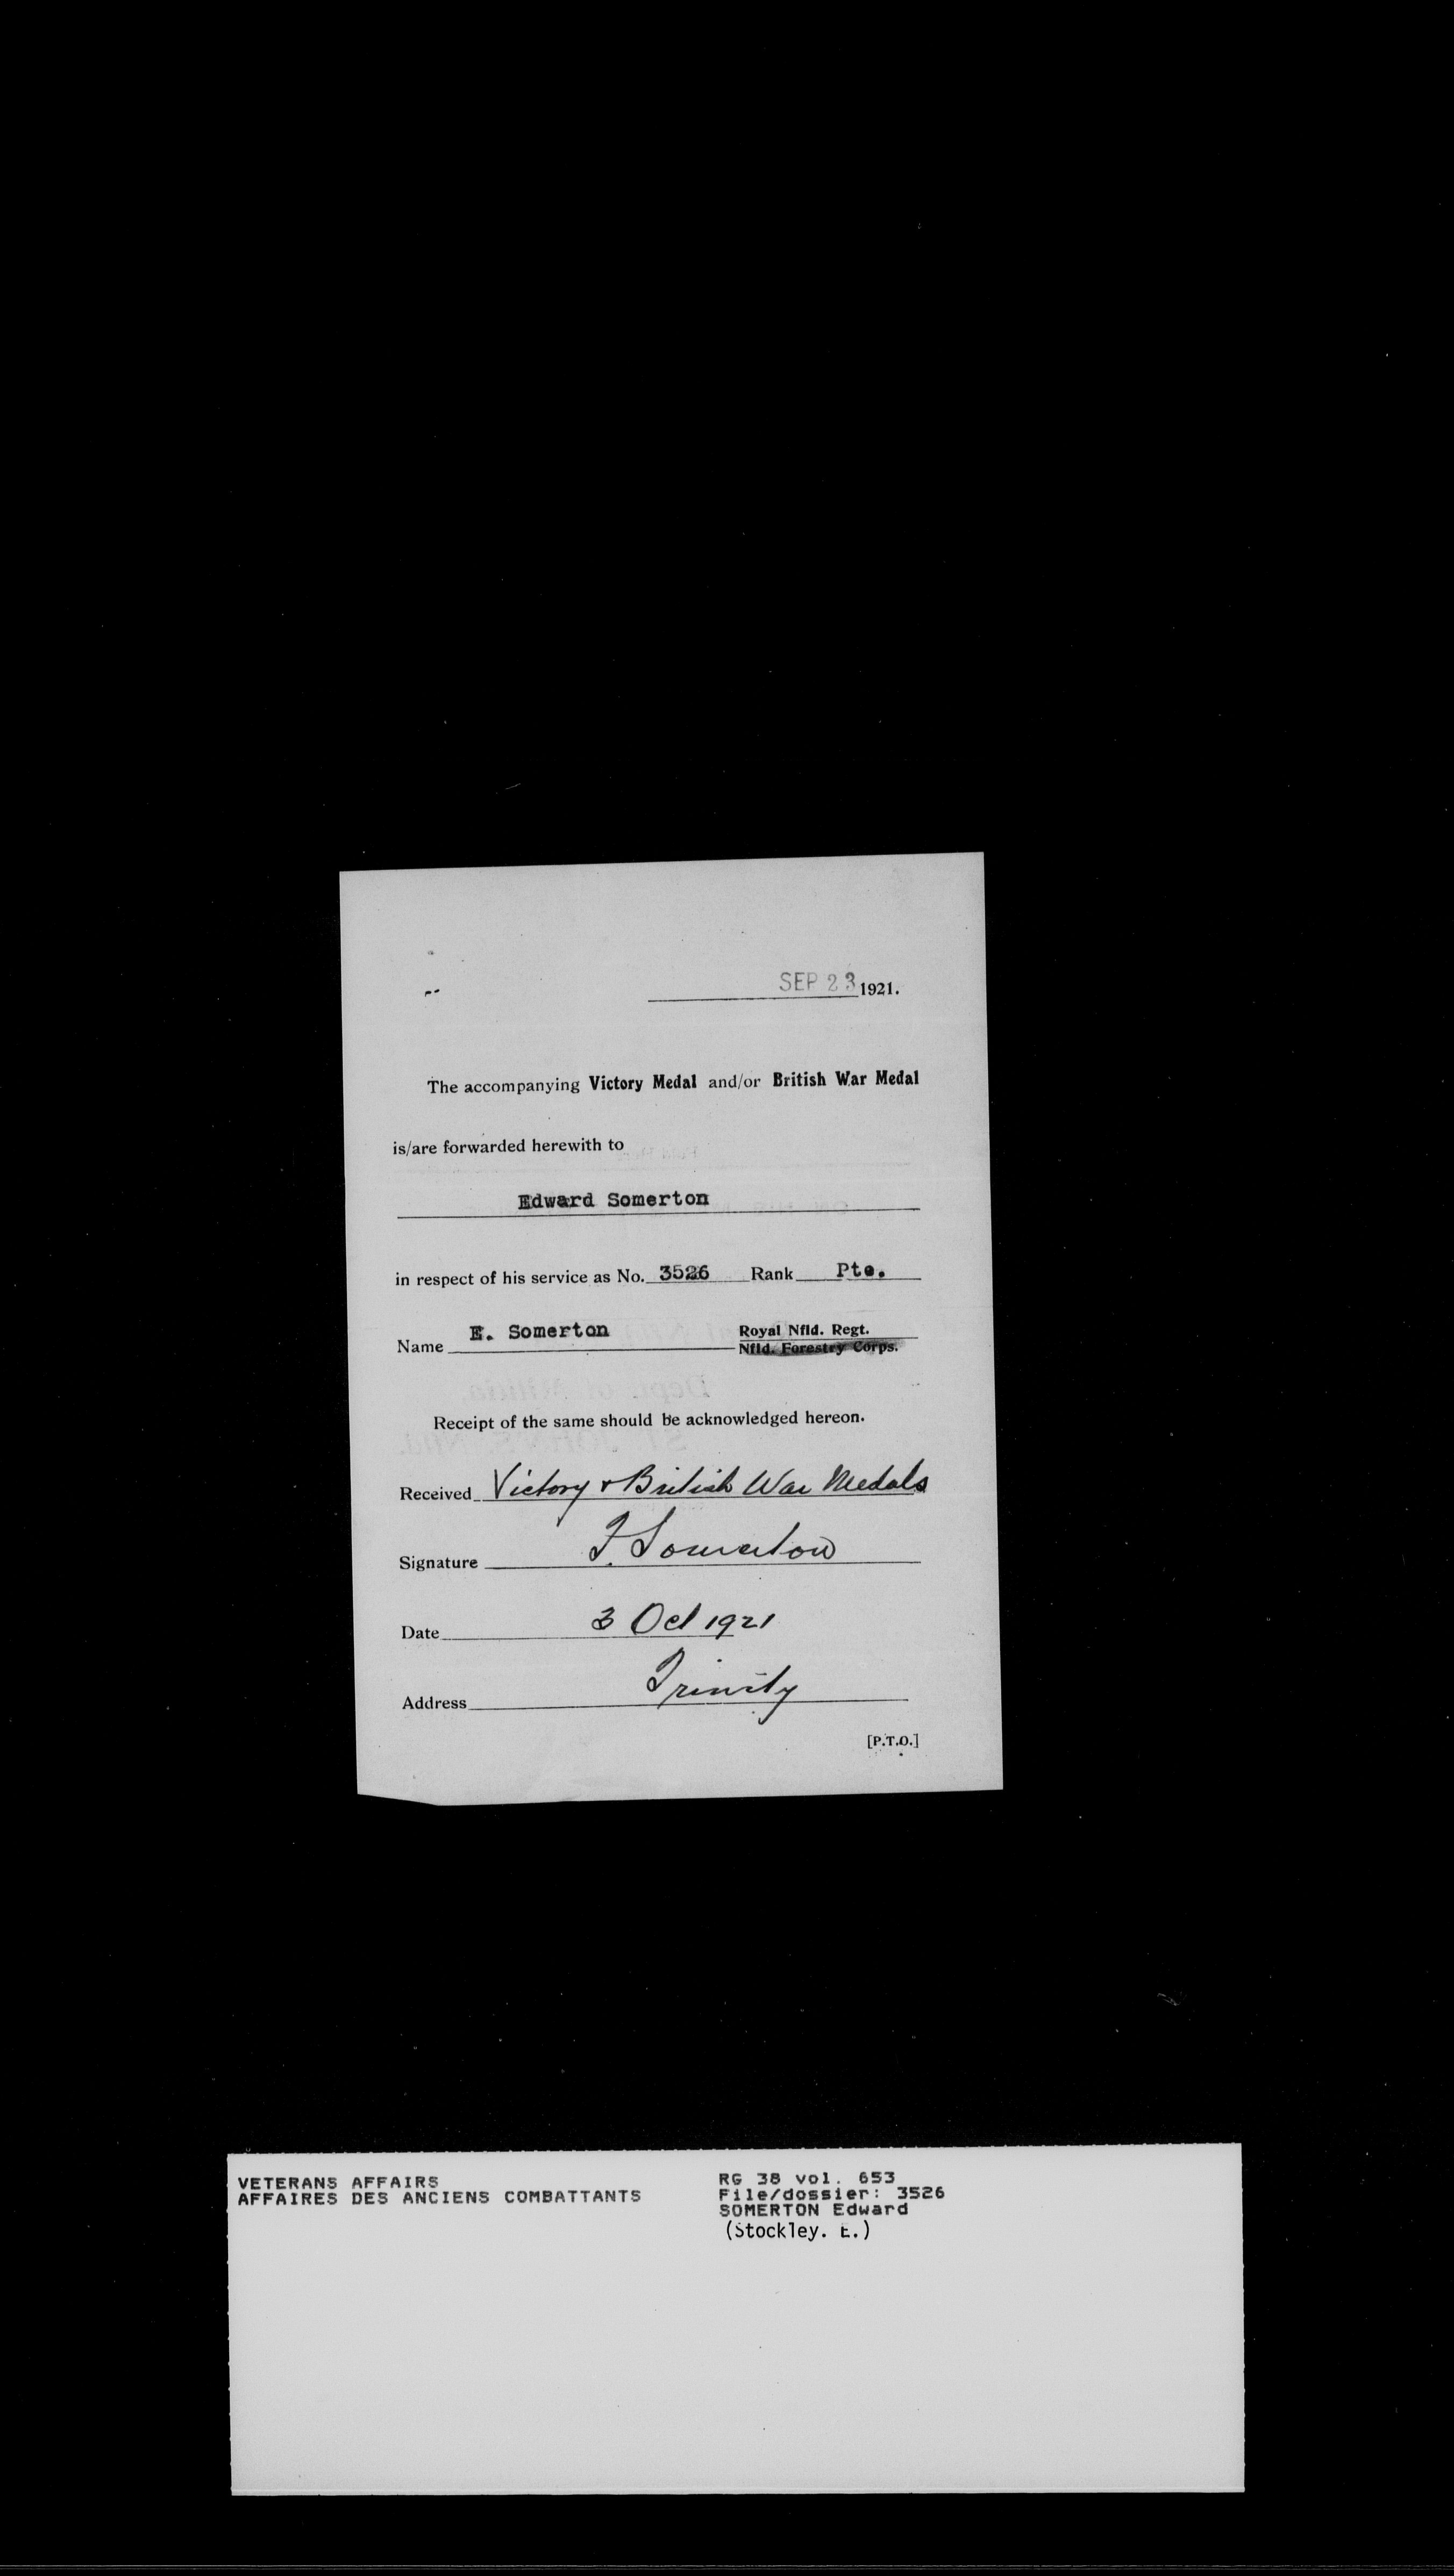 SEP 23 1921.
The accompanying Victory Medal and/or British War Medal
is/are forwarded herewith to
Edward Somerton
in respect of his service as No. 3526 Rank Pte.
Name E. Somerton Royal Nfld. Regt.
Nfld. Forestry Corps.
Receipt of the same should be acknowledged hereon.
Received Victory & British War Medals
Signature F. Somerton
Date 3 Oct 1921
Address Trinity
[P.T.O.]
VETERANS AFFAIRS
AFFAIRES DES ANCIENS COMBATTANTS
RG 38 vol. 653
File/dossier: 3526
SOMERTON Edward
(Stockley. E.)